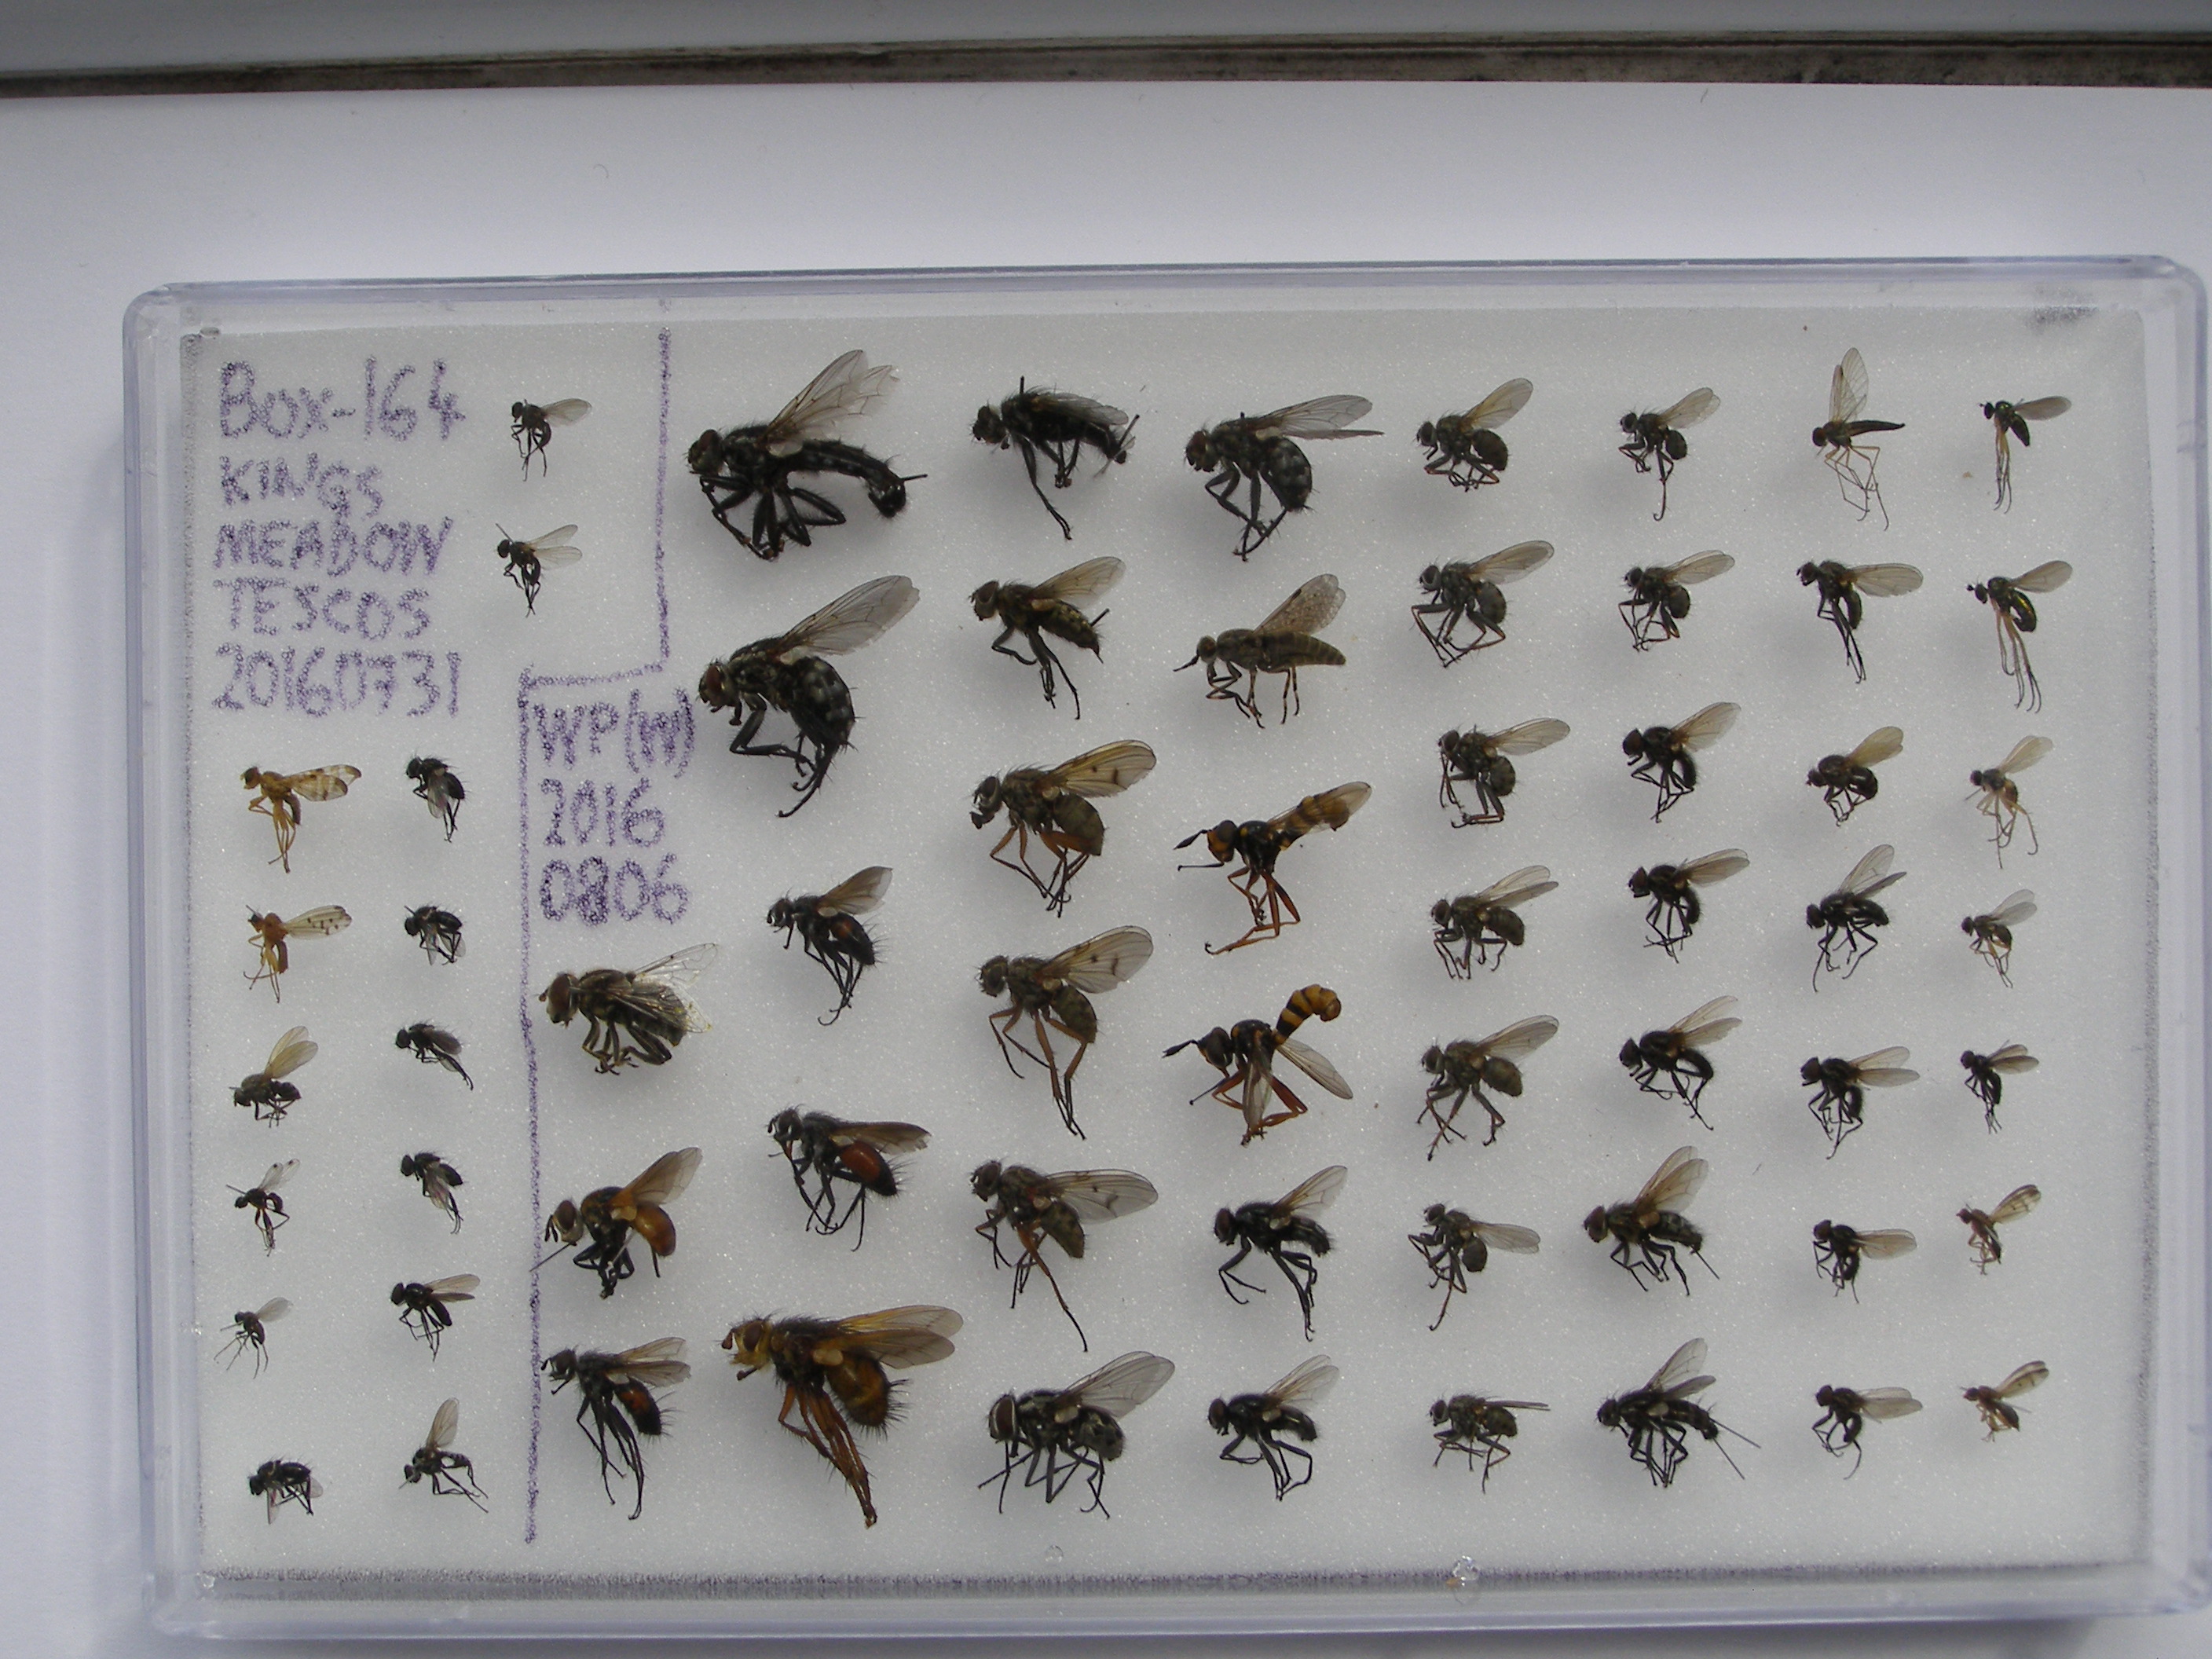 Box-164
KINGS
MEADOW
TESCOS
20160731
WP(W)
2016
0806